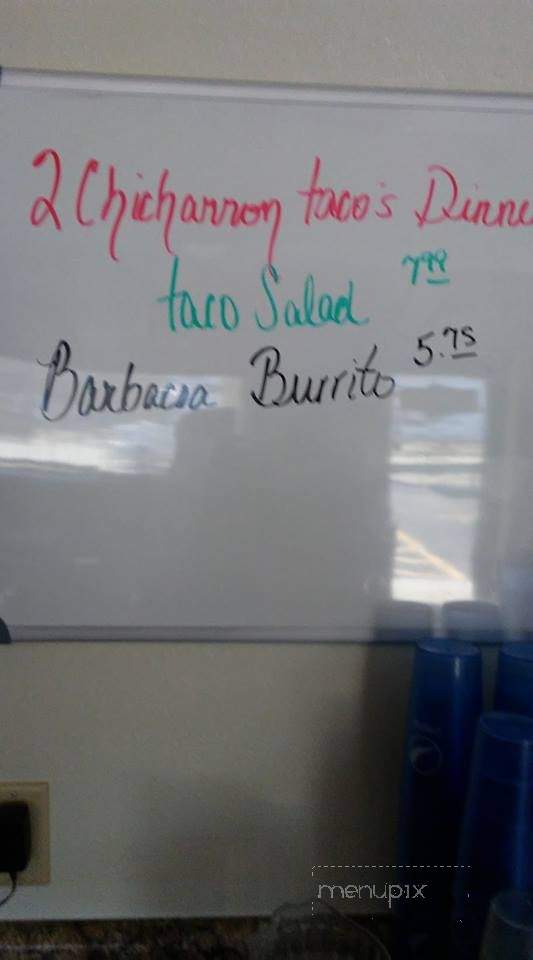 2 Chicharron taco's Dinne
taco Salad 7.99
Barbacoa Burrito 5.75
menupix